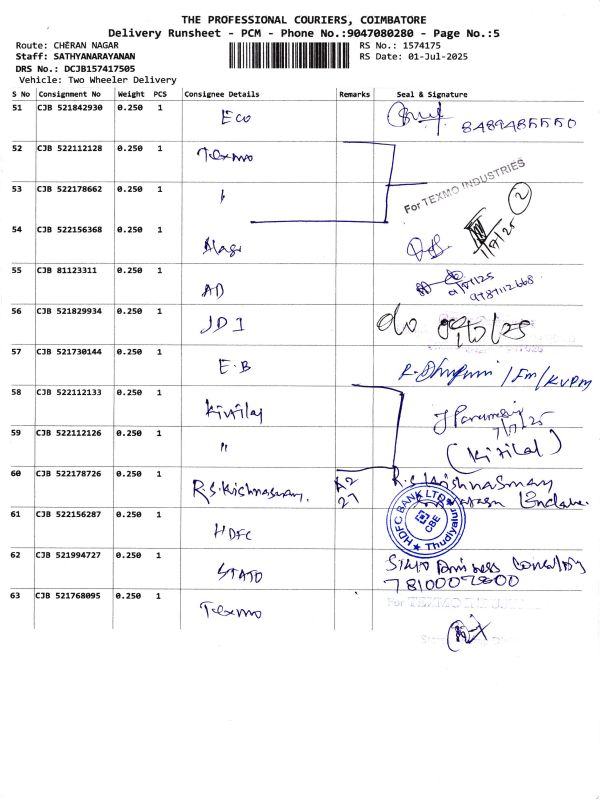 THE PROFESSIONAL COURIERS, COIMBATORE
Delivery Runsheet - PCM - Phone No.:9047080280 - Page No.:5
Route: CHERAN NAGAR RS No.: 1574175
Staff: SATHYANARAYANAN RS Date: 01-Jul-2025
DRS No.: DCJB157417505
Vehicle: Two Wheeler Delivery
S No Consignment No Weight PCS Consignee Details Remarks Seal & Signature
51 CJB 521842930 0.250 1 Eco
52 CJB 522112128 0.250 1 Texmo
53 CJB 522178662 0.250 1 For TEXMO INDUSTRIES 2
54 CJB 522156368 0.250 1 1/7/25
55 CJB 81123311 0.250 1 AD
9787112668
56 CJB 521829934 0.250 1 JDI
57 CJB 521730144 0.250 1 E.B / Fm/KVPM
58 CJB 522112133 0.250 1 Kirilal
59 CJB 522112126 0.250 1 " 1/7/25
(Kirilal)
60 CJB 522178726 0.250 1 R.S.Krishnasamy. A2 27 R.S Krishnasamy
61 CJB 522156287 0.250 1 HDFC HDFC BANK LTD CBE Thudiyalur
62 CJB 521994727 0.250 1 STATO
63 CJB 521768095 0.250 1 Texmo For TEXMO